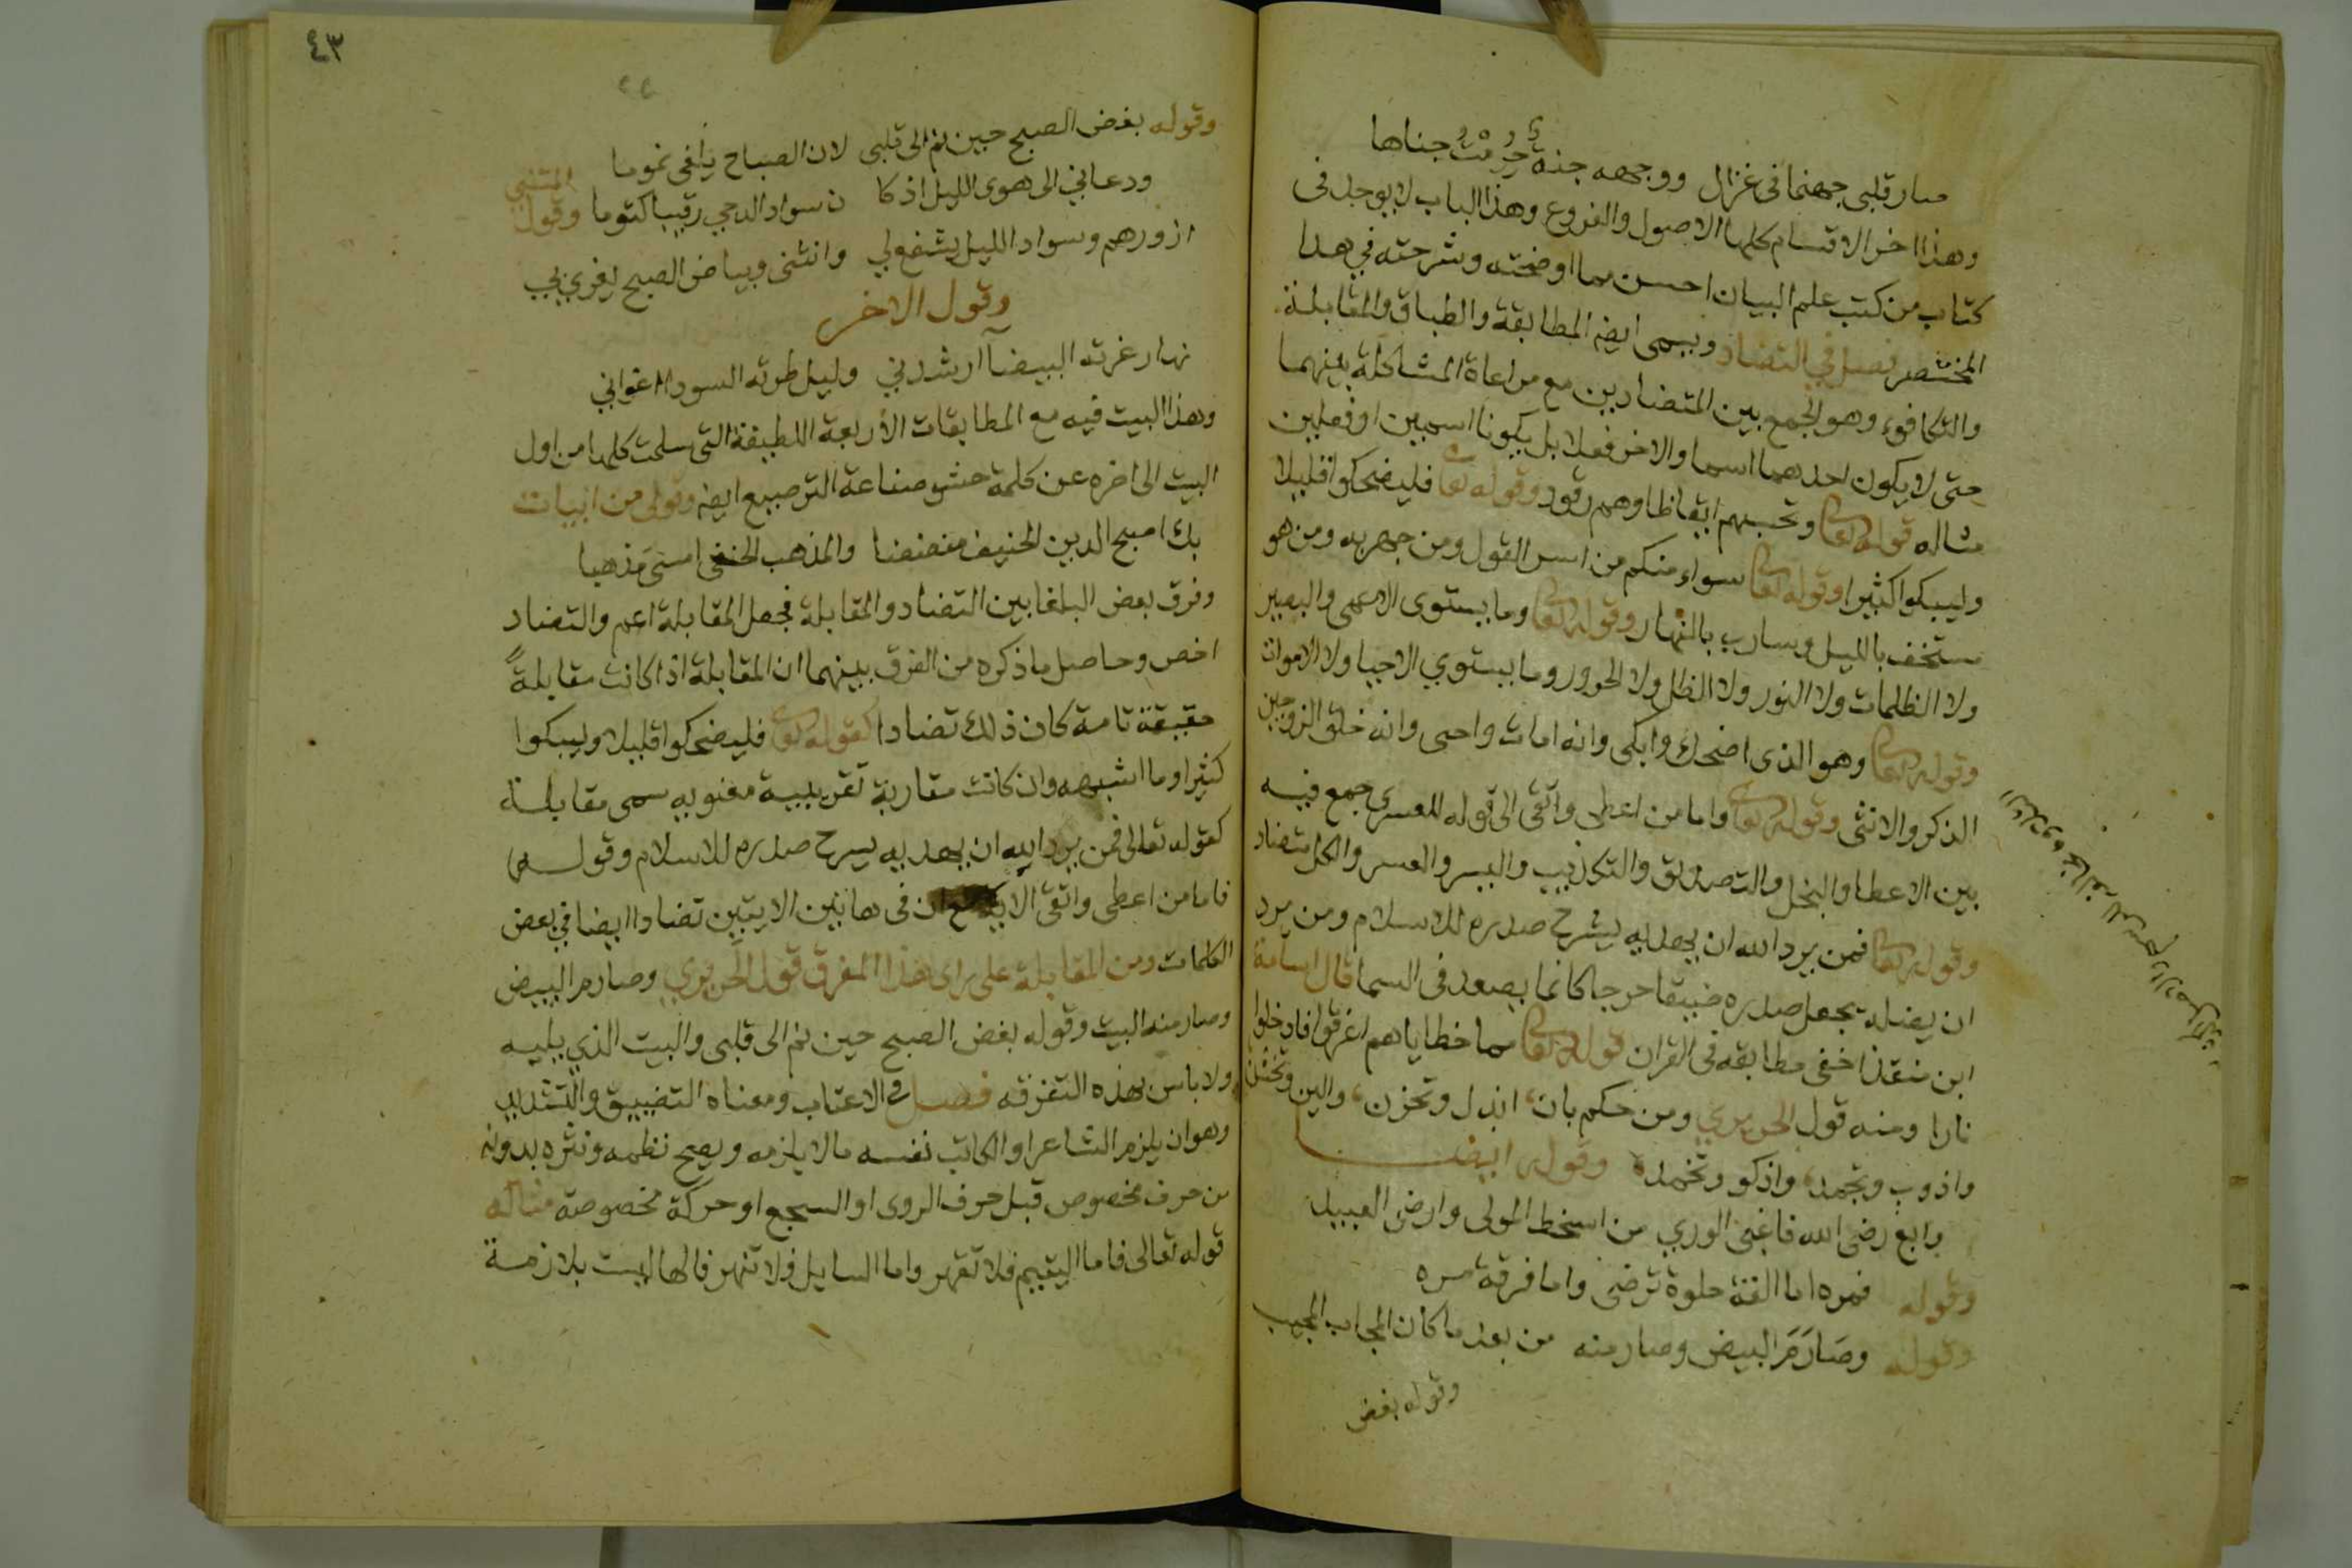 صار قلبى جهنما فى غزال ووجهه جنة حرمت جناها
وهذا اخر الاقسام كلها الاصول والفروع وهذا الباب لا يوجد فى
كتاب من كتب علم البيان احسن مما اوضحته وشرحته في هدا
المختصر فصل في التضاد ويسمى ايضا المطابقة والطباق والمقابلة
والتكافوء وهو الجمع بين المتضادين مع مراعاة المشاكلة بينهما
حتى لا يكون احدهما اسما والاخر فعلا بل يكونا اسمين او فعلين
مثاله قوله تعالى وتحسبهم ايقاظا وهم رقود وقوله تعا فليضحكوا قليلا
وليبكوا كثيرا وقوله تعالى سواء منكم من اسر القول ومن جهر به ومن هو
مستخف بالليل وسارب بالنهار وقوله تعالى وما يستوى الاعمى والبصير
ولا الظلمات ولا النور ولا الظل ولا الحرور وما يستوي الاحيا ولا الاموات
وقوله تعالى وهو الذى اضحك وابكى وانه امات واحى وانه خلق الزوجين
الذكر والانثى وقوله تعالى واما من اعطى واتقى الى قوله للعسرى جمع فيه
بين الاعطا والبخل والتصديق والتكذيب واليسر والعسر والكل متضاد
وقوله تعالى فمن يرد الله ان يهديه يشرح صدره للاسلام ومن يرد
ان يضله يجعل صدره ضيقا حرجا كانما يصعد فى السما قال اسامة
ابن منقذ اخفى مطابقه فى القران قوله تعالى مما خطاياهم اغرقوا فادخلوا
نارا ومنه قول الحريري ومن حكم بان ابذل وتخزن، والين وتخشن
واذوب وتجمد، واذكو وتخمد، وقوله ايضا
وابغ رضى الله فاغبى الوري من اسخط المولى وارضى العبيد
وقوله فمره اما الفة حلوة ترضى واما فرقة مره
وقوله وصَارَمَ البيض وصارمنه من بعد ما كان المجاب المجيب
وقوله بغض
٤٣
وقوله بغض الصبح حين نم الى قلبى لان الصباح يلفى نموما
ودعاني الى هوى الليل اذ كا ن سواد الدجي رقيبا كتوما وقول المتنبي
ازورهم وسواد الليل يشفع لي وانثنى وبياض الصبح يغري بي
وقول الاخر
نهار غرته البيضآ ارشدني وليل طرته السودا اغواني
وهذا البيت فيه مع المطابقات الأربعة اللطيفة التى سلمت كلها من اول
البيت الى اخره عن كلمة حشو صناعة الترصيع ايضا وقولى من ابيات
بك اصبح الدين الحنيف مفضضا والمذهب الحنفى امسى مذهبا
وفرق بعض البلغا بين التضاد والمقابلة فجعل المقابلة اعم والتضاد
اخص وحاصل ما ذكره من الفرق بينهما ان المقابلة اذا كانت مقابلةً
حقيقة تامة كان ذلك تضادا كقوله تعالى فليضحكوا قليلا وليبكوا
كثيرا وما اشبهه وان كانت مقاربة تقريبية معنويه سمى مقابلة
كقوله تعالى فمن يرد الله ان يهديه يسرح صدره للاسلام وقوله
فاما من اعطى واتقى الاية مع ان فى هاتين الايتين تضادا ايضا في بعض
الكلمات ومن المقابلة على راى هذا المفرق قول الحريري وصارم البيض
وصارمنه البيت وقوله بغض الصبح حين نم الى قلبى والبيت الذي يليه
ولا باس بهذه التفرقه فصل في الاعتاب ومعناه التضييق والتشديد
وهو ان يلزم الشاعر او الكاتب نفسه مالا يلزمه ويصح نظمه ونثره بدونه
من حرف مخصوص قبل حرف الروى او السجع او حركة مخصوصة مثاله
قوله تعالى فاما اليتيم فلا تقهر واما السايل فلا تنهر فالها ليست بلازمة